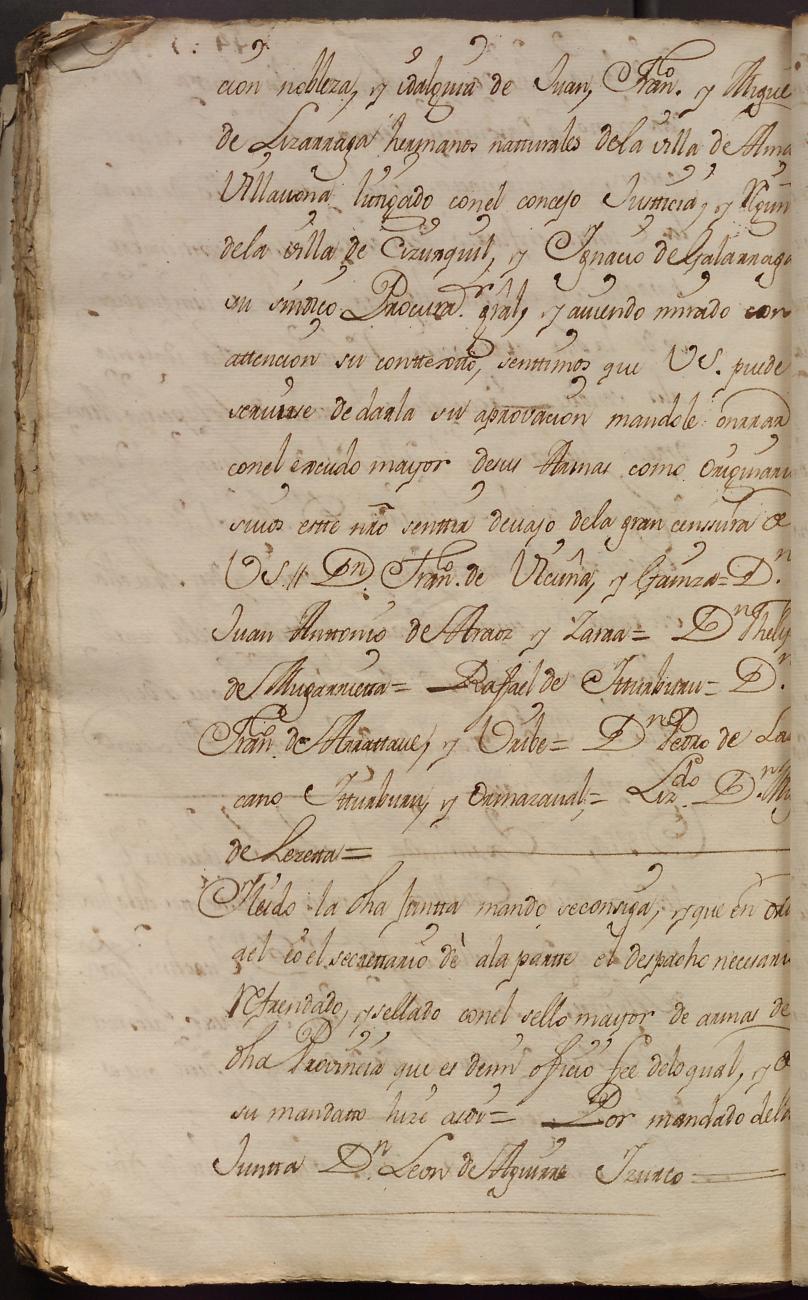 cion nobleza, y idalguia de Juan, Fran.co y Migue
de Lizarraga hermanos natturales dela villa de Ama
Villavona litigado conel concejo Justticia, y Regim
dela villa de Cizurquil, y Ignacio de Galarraga
su sindico Procurad.r gr̃al, y aviendo mirado con
attencion su conttexto, senttimos que VS. puede
servirse de darla su aprovacion mandole onrrar
conel escudo mayor de sus Armas como originari
sivos este nr̃o senttir devajo dela gran censura de
VS.// Dn. Fran.co de Vicuña, y Gainza= D.n
Juan Anttonio de Araoz y Zaraa= D.n Phelip
de Mugarrietta= Rafael de Itturburu= D.n
Fran.co de Arrattave, y Uribe= D.n Pedro de La
cano Itturburu, y Ormazaval= Liz.do D.n Mig
de Lezetta=
Y leido la dha Juntta mando se consiga, y que en
 el secrettario dè ala partte el despacho necesari
Refrendado, y sellado conel sello mayor de armas de
dha Provincia que es de mi officio fee delo qual, y de
su mandatto hize = Por mandado dela
Juntta D.n Leon de Aguirre Izurco